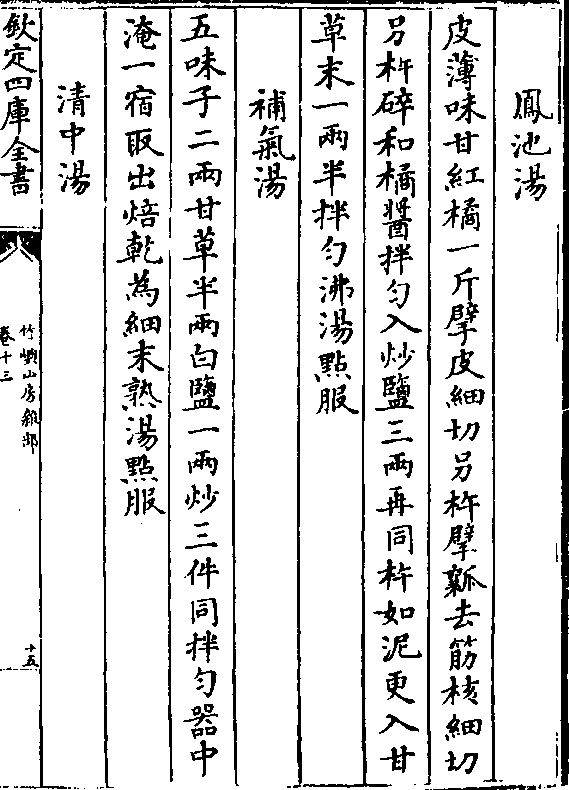 鳳池湯
皮薄味甘紅橘一斤擘皮細切另杵擘瓤去筋核細切
另杵碎和橘醬拌勻入炒鹽三兩再同杵如泥更入甘
草末一兩半拌勻沸湯點服
補氣湯
五味子二兩甘草半兩白鹽一兩炒三件同拌勻器中
淹一宿取出焙乾為細末熟湯點服
清中湯
欽定四庫全書
竹嶼山房雜部
卷十三
十五